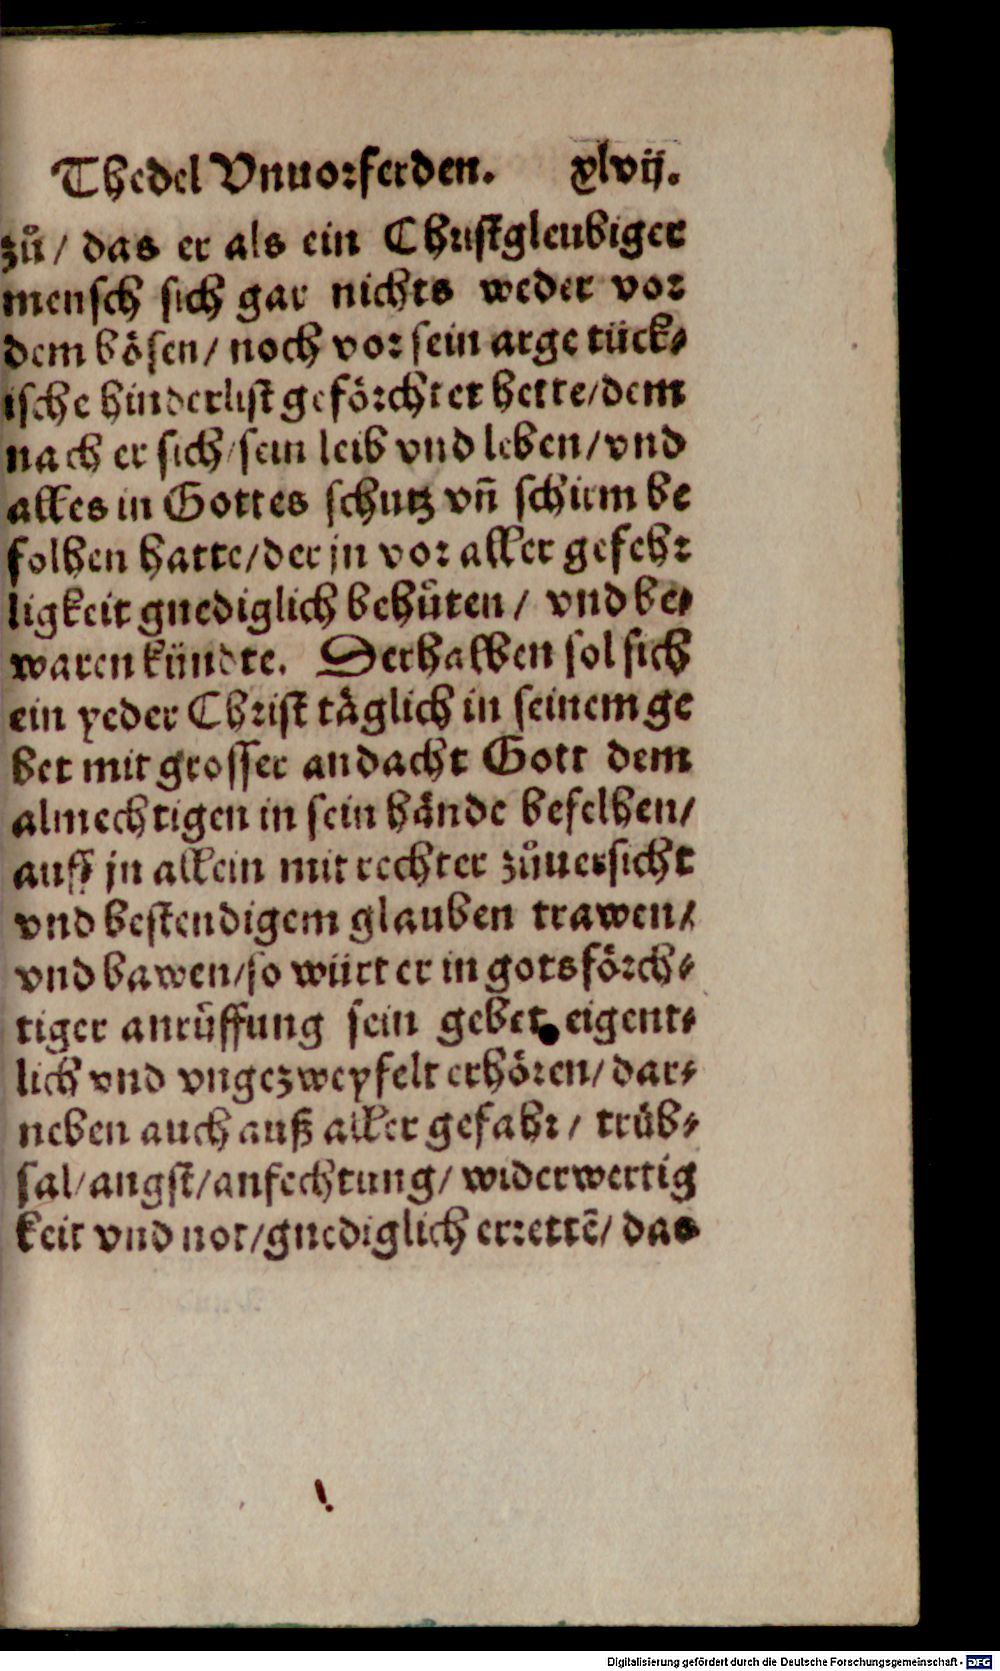 Thedel Vnuorferden. xlvij.
zů / das er als ein Christgleubiger
mensch sich gar nichts weder vor
dem bösen / noch vor sein arge tück⸗
ische hinderlist geförchtet hette / dem
nach er sich / sein leib vnd leben / vnd
alles in Gottes schutz vñ schirm be
folhen hatte / der jn vor aller gefehr
ligkeit gnediglich behüten / vnd be⸗
waren kündte. Derhalben sol sich
ein yeder Christ täglich in seinem ge
bet mit grosser andacht Gott dem
almechtigen in sein hände befelhen /
auff jn allein mit rechter zůuersicht
vnd bestendigem glauben trawen /
vnd bawen / so würt er in gotsförch⸗
tiger anrüffung sein gebet eigent⸗
lich vnd vngezweyfelt erhören / dar⸗
neben auch auß aller gefahr / trüb⸗
sal / angst / anfechtung / widerwertig
keit vnd not / gnediglich errettẽ / das
Digitalisierung gefördert durch die Deutsche Forschungsgemeinschaft - DFG